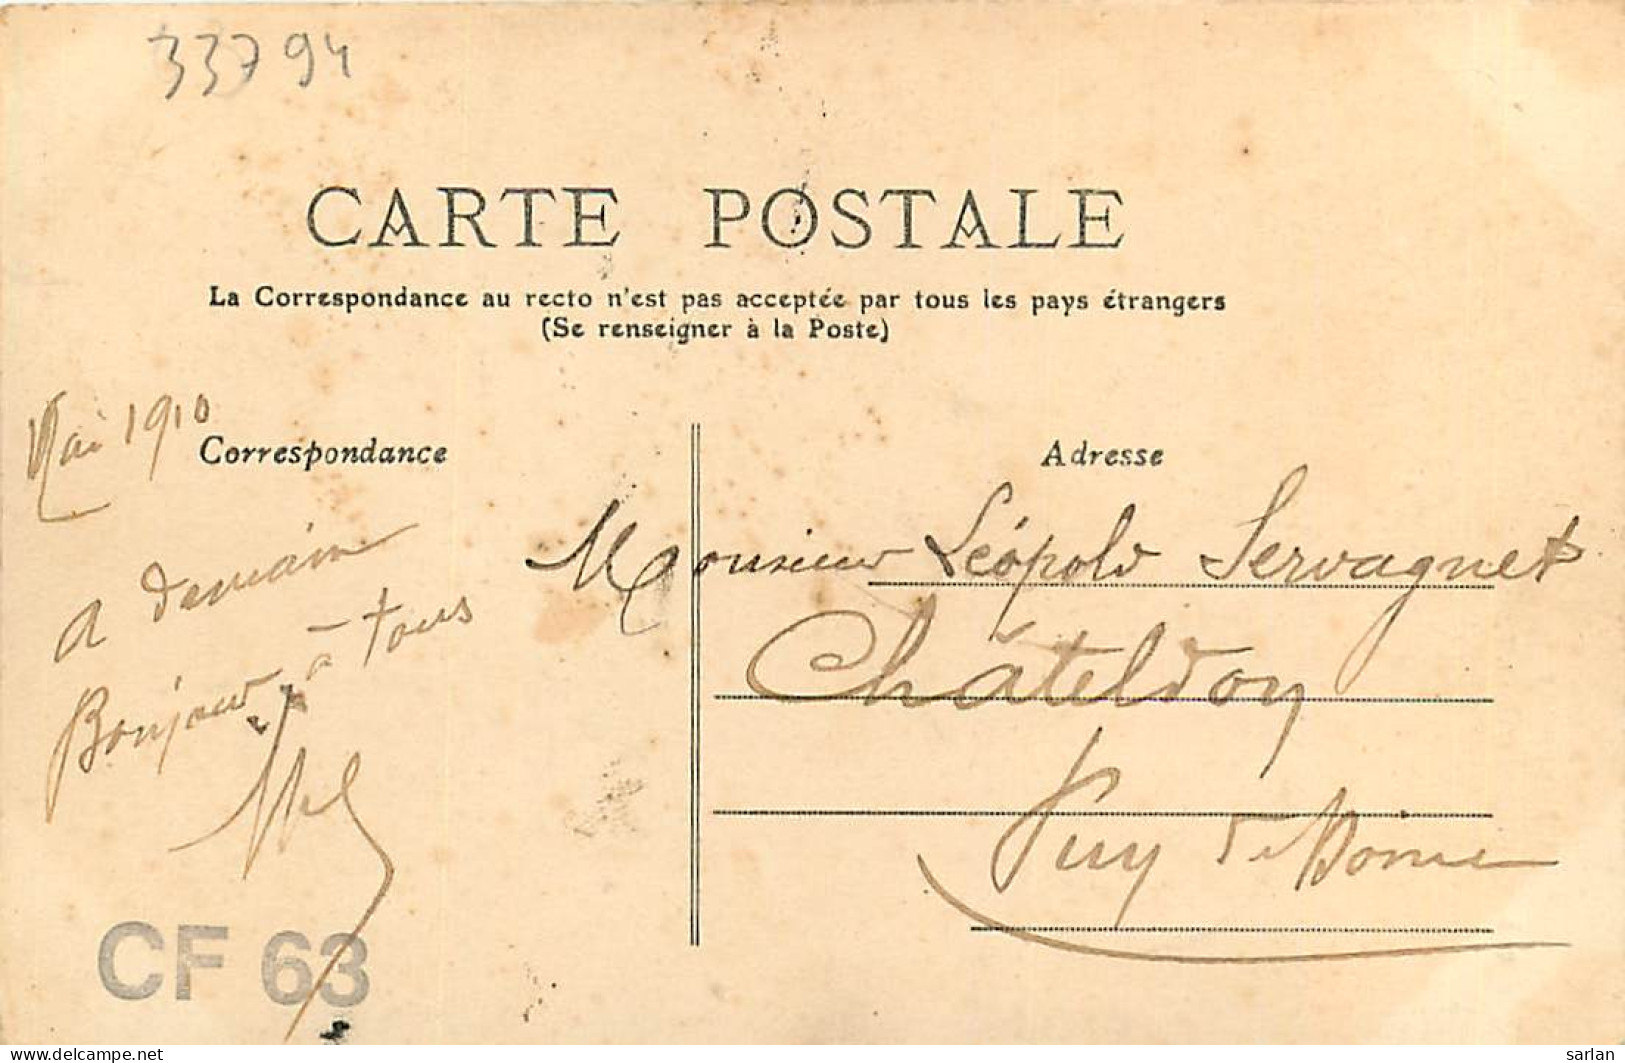 33794
CARTE POSTALE
La Correspondance au recto n'est pas acceptée par tous les pays étrangers
(Se renseigner à la Poste)
Mai 1910
Correspondance
a demain
Bonjour à tous
Adresse
Monsieur Léopold Servagnet
Châteldon
Puy de Dôme
CF 63
www.delcampe.net
Sarlan